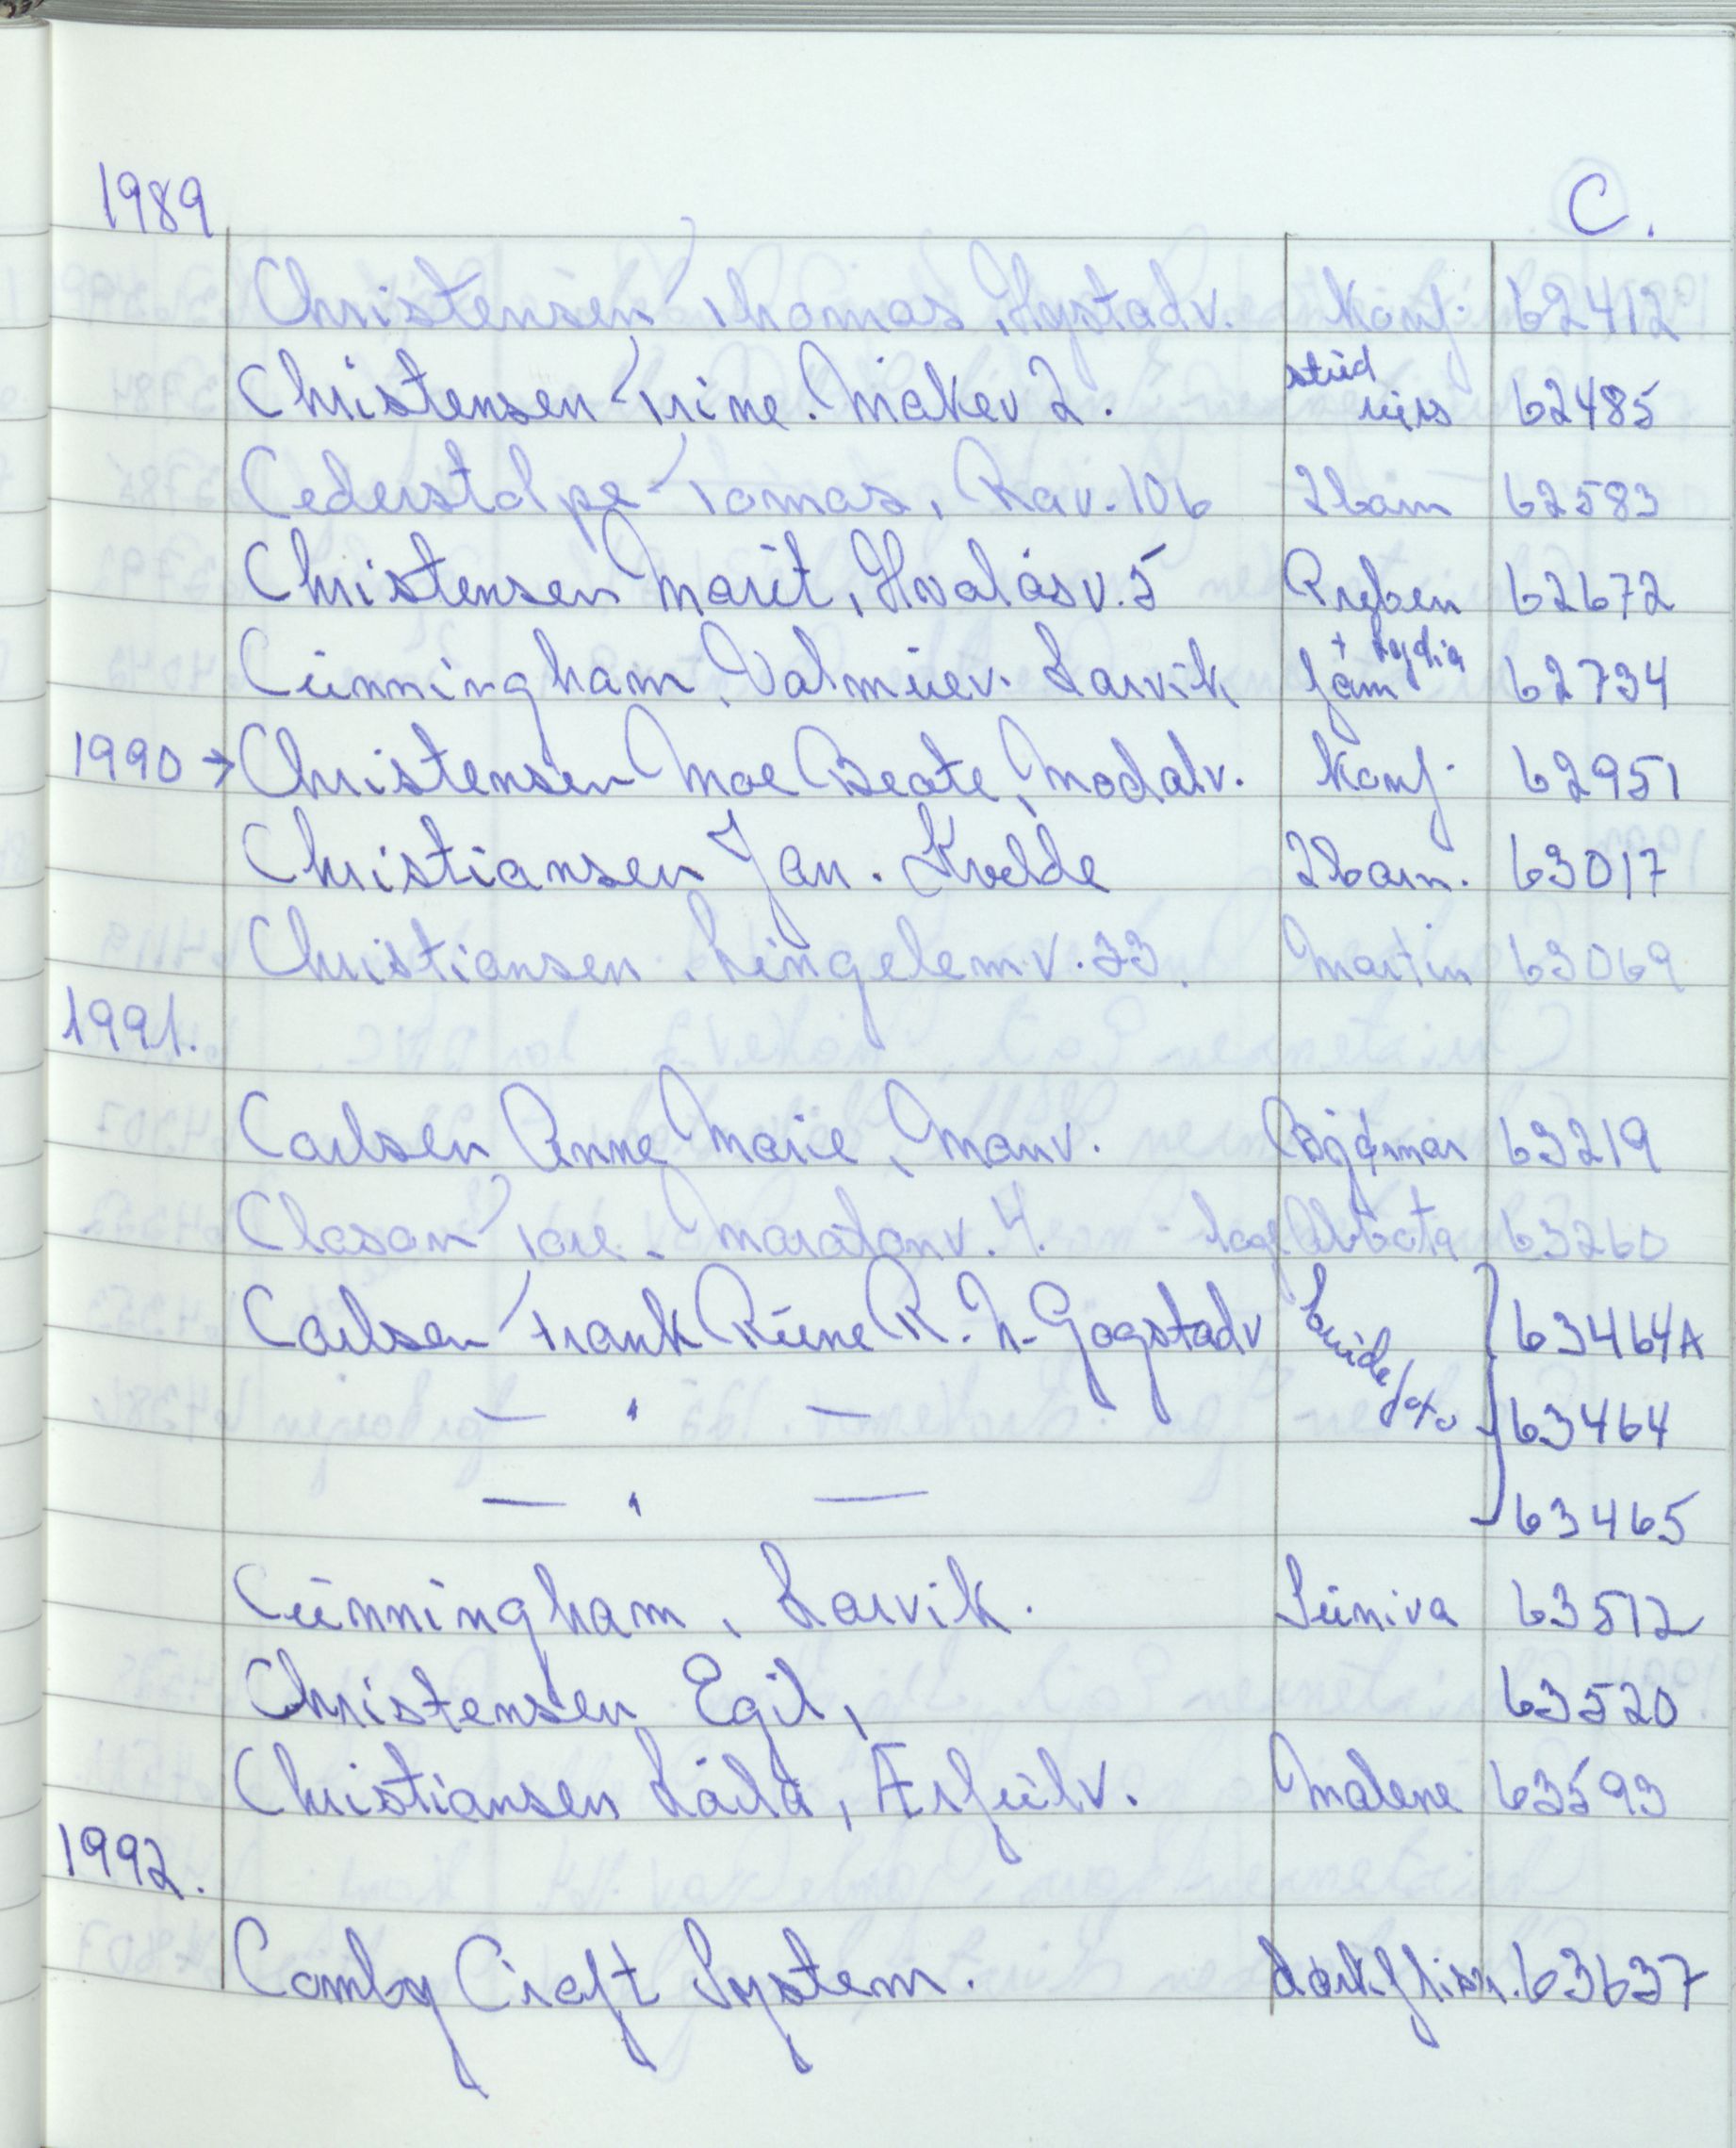 1989 C.
Christensen Thomas, Nystadv. Konf. 62412
Christensen Trine. Måkev 2. stud urs 62485
Cederstolpe Tomas, Rav. 10b 2 barn 62583
Christensen Marit, Hvalåsv. 5 Preben 62672
+ Lydia
Cunningham, Valmuev. Larvik fam 62734
1990 → Christensen Moe Beate, Modalv. Konf. 62951
Christiansen Jan. Kvelde 2 barn. 63017
Christiansen Lingelemv. 33. Martin 63069
1991.
Carlsen Anne Marie, Manv. 63219
Clason Tore. Maratonv. 4. 63260
Carlsen Frank Rune R. N. Gogstadv Brude foto 63464A
— " — 63464
— " — 63465
Cunningham, Larvik. Suniva 63512
Christensen Egil, 63520
Christiansen Laila, Ærfuglv. Malene 63593
1992.
Comby Craft System. 63637